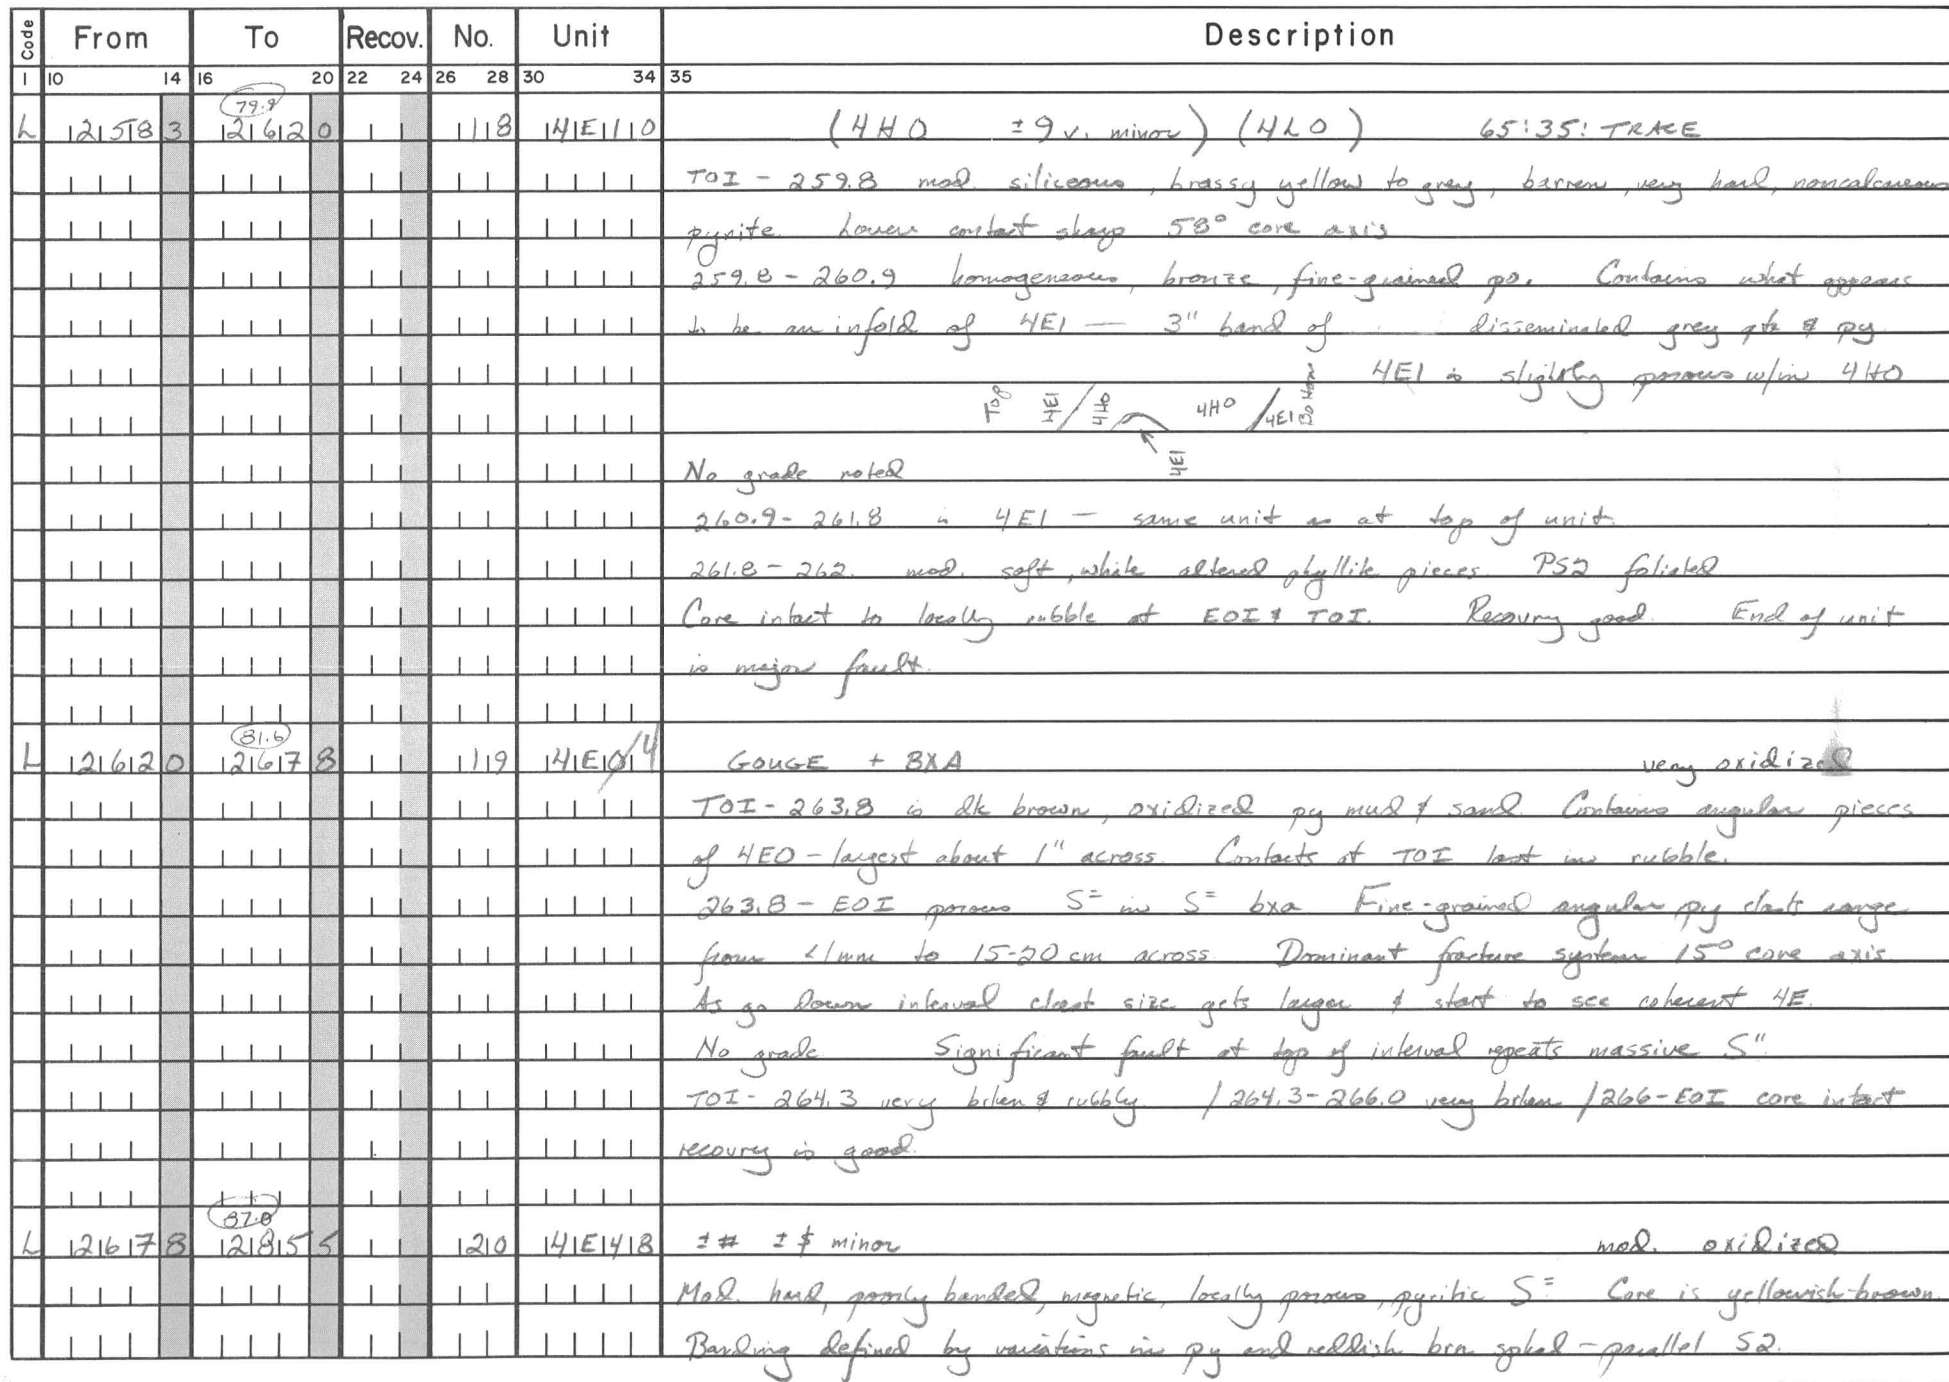 Code From To Recov. No. Unit Description
1 10 14 16 20 22 24 26 28 30 34 35
79.9
L 258 3 262 0 18 4E10 (4HO ±9 v. minor) (4LO) 65:35: TRACE
TOI - 259.8 mod. siliceous, brassy yellow to grey, barren, very hard, noncalcareous
pyrite. Lower contact sharp 58° core axis
259.8 - 260.9 homogeneous, bronze, fine-grained po. Contains what appears
to be an infold of 4E1 — 3" band of disseminated grey qtz & py
4E1 is slightly porous w/in 4HO
Top 4E1 / 4HO 4HO / 4E1 Bottom
4E1
No grade noted
260.9 - 261.8 is 4E1 — same unit as at top of unit.
261.8 - 262. mod. soft, white altered phyllite pieces. PS2 foliated
Core intact to locally rubble at EOI & TOI. Recovry good. End of unit
is major fault.
81.6
L 262 0 267 8 19 4E04 GOUGE + BXA very oxidized
TOI - 263.8 is dk brown, oxidized py mud & sand. Contains angular pieces
of 4EO - largest about 1" across. Contacts at TOI lost in rubble.
263.8 - EOI porous S= in S= bxa Fine-grained angular py clasts range
from <1mm to 15-20 cm across. Dominant fracture system 15° core axis
As go down interval clast size gets larger & start to see coherent 4E.
No grade Significant fault at top of interval repeats massive S"
TOI - 264.3 very brken & rubbly / 264.3-266.0 very brken / 266-EOI core intact
recovry is good.
87.0
L 267 8 285 5 20 4E48 ±# ±$ minor mod. oxidized
Mod. hard, poorly banded, magnetic, locally porous, pyritic S= Core is yellowish-brown.
Banding defined by variations in py and reddish brn sphal - parallel S2.